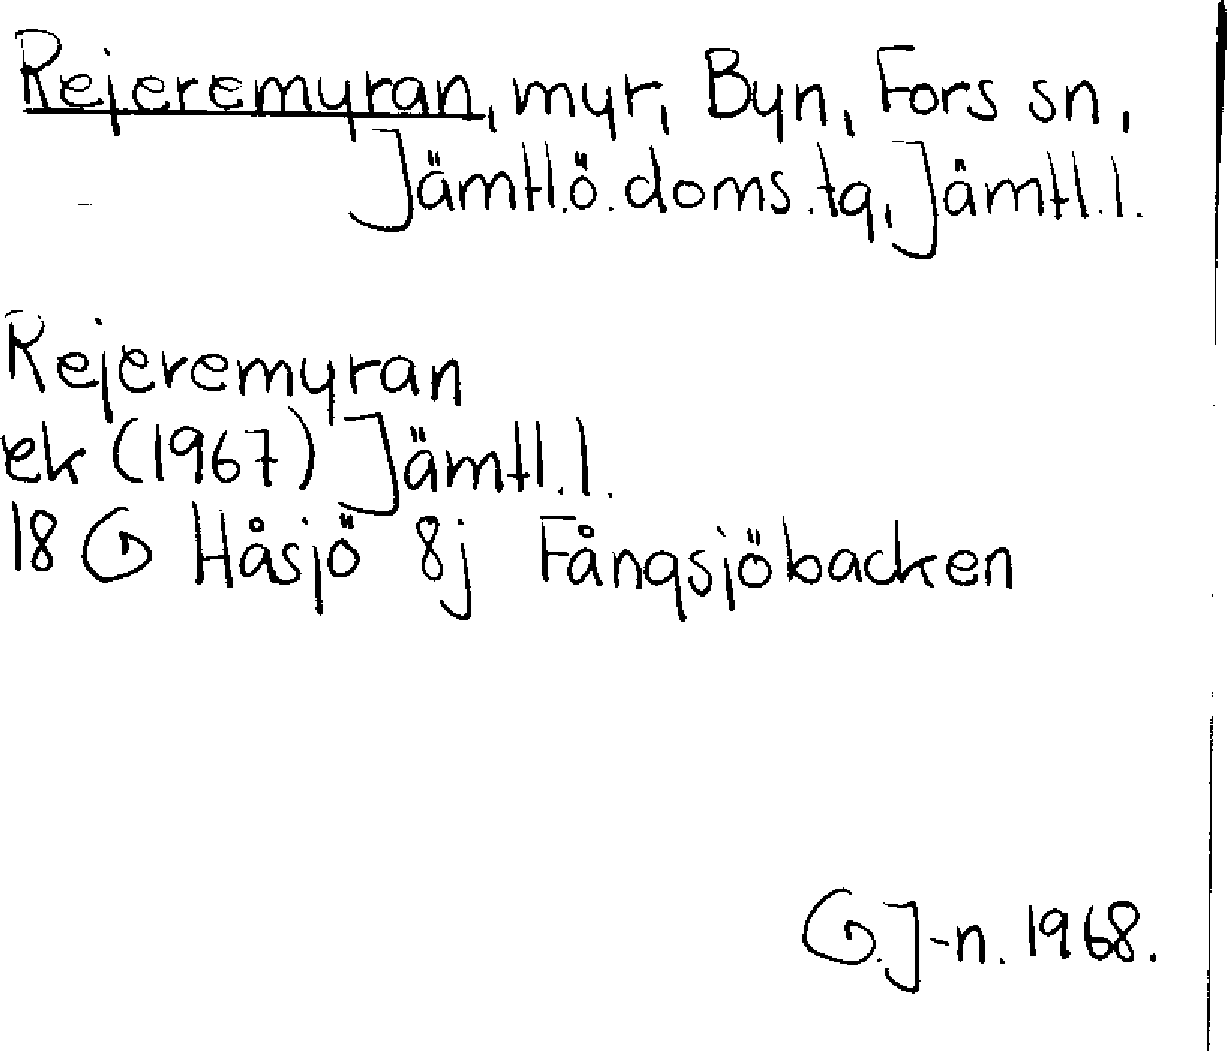 Rejeremyran, myr, Byn, Fors sn,
Jämtl.ö.doms.tg, Jämtl.l.
Rejeremyran
ek (1967) Jämtl.l.
18 G Håsjö 8j Fångsjöbacken
G.J-n. 1968.